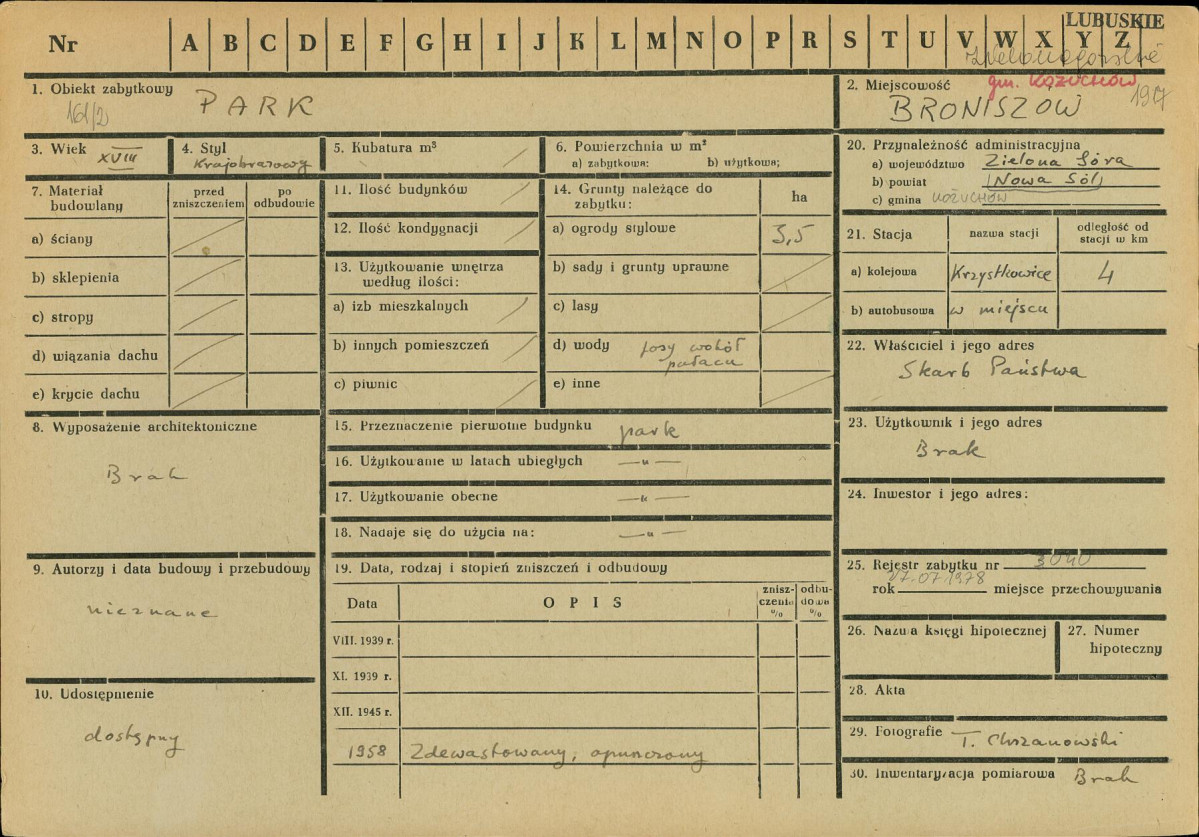 LUBUSKIE
Nr A B C D E F G H I J K L M N O P R S T U V W X Y Z
1. Obiekt zabytkowy PARK
161/2
2. Miejscowość gm. KOŻUCHÓW
BRONISZÓW
3. Wiek XVIII
4. Styl
Krajobrazowy
5. Kubatura m³
6. Powierzchnia w m²
a) zabytkowa: b) użytkowa;
20. Przynależność administracyjna
a) województwo Zielona Góra
b) powiat Nowa Sól
c) gmina KOŻUCHÓW
7. Materiał budowlany
przed zniszczeniem
po odbudowie
a) ściany
b) sklepienia
c) stropy
d) wiązania dachu
e) krycie dachu
11. Ilość budynków
12. Ilość kondygnacji
13. Użytkowanie wnętrza
według ilości:
a) izb mieszkalnych
b) innych pomieszczeń
c) piwnic
14. Grunty należące do
zabytku:
ha
a) ogrody stylowe 3,5
b) sady i grunty uprawne
c) lasy
d) wody fosy wokół
pałacu
e) inne
21. Stacja
nazwa stacji
odległość od
stacji w km
a) kolejowa Krzystkowice 4
b) autobusowa w miejscu
22. Właściciel i jego adres
Skarb Państwa
8. Wyposażenie architektoniczne
Brak
15. Przeznaczenie pierwotne budynku park
16. Użytkowanie w latach ubiegłych —"—
17. Użytkowanie obecne —"—
18. Nadaje się do użycia na: —"—
23. Użytkownik i jego adres
Brak
24. Inwestor i jego adres:
9. Autorzy i data budowy i przebudowy
nieznane
19. Data, rodzaj i stopień zniszczeń i odbudowy
Data
OPIS
znisz-
czenia
%
odbu-
dowa
%
VIII. 1939 r.
XI. 1939 r.
XII. 1945 r.
1958 Zdewastowany, opuszczony
25. Rejestr zabytku nr 3040
17.07.1978
rok miejsce przechowywania
26. Nazwa księgi hipotecznej
27. Numer
hipoteczny
10. Udostępnienie
dostępny
28. Akta
29. Fotografie T. Chrzanowski
30. Inwentaryzacja pomiarowa Brak